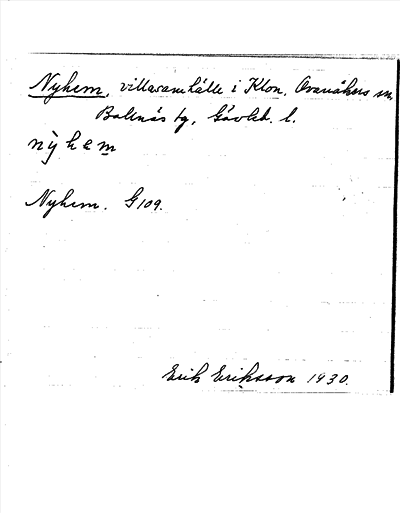 Nyhem, villasamhälle i Klon, Ovanåkers sn,
Bollnäs tg, Gävleb. l.
nỳhem
Nyhem. G 109.
Erik Eriksson 1930.